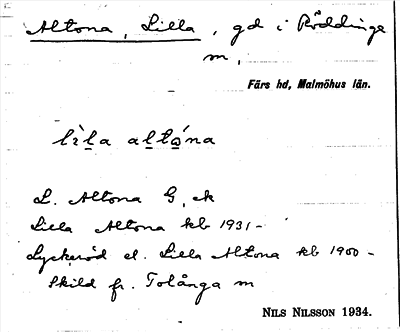 Altona, Lilla, gd i Röddinge
m,
Färs hd, Malmöhus län.
lìl̠a al̠tώ̠na
L. Altona G, ek
Lilla Altona kb 1931-
Lyckeröd el. Lilla Altona kb 1900-
Skild fr. Tolånga m
NILS NILSSON 1934.